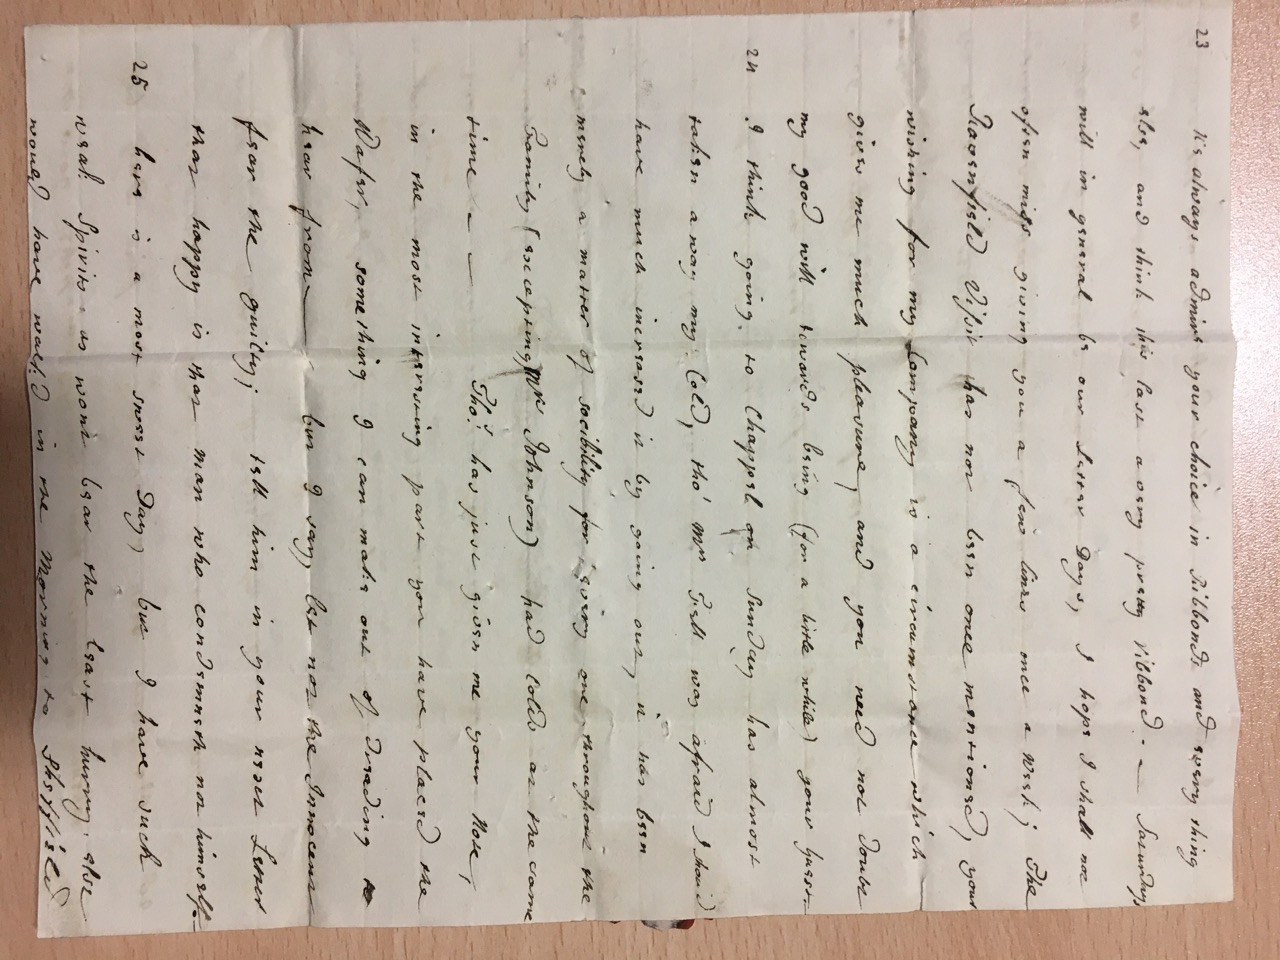 23 I's always admire your choice in Ribbonds and every thing
else, and think this last a very pretty ribbond - - Saturdays
will in general be our Letter Days, I hope I shall not
often miss giving you a few lines once a Week; The
Visit has not been once mentioned, your
wishing for my Company is a circumstance which
gives me much pleasure, and you need not doubt
my good will towards being (for a little while) your guest.
24 I think going to Chappel on Sunday has almost
taken away my Cold, tho' Mrs Fell was afraid I should
have much increased it by going out, it has been
merely a matter of socibility for every one throughout the
Family (excepting Mrs Johnson) had colds at the same
time - - Thos. has just given me your Note,
in the most intersting part you have placed the
Wafer, something I can make out of dreading to
hear from — but I say let not the Innocent
fear the guilty; tell him in your next Letter
that happy is that man who condemneth not himself.
25 here is a most sweet Day, but I have such
weak Spirits as wont bear the least hurry, else
woud have walk'd in the Morning to Sheffield